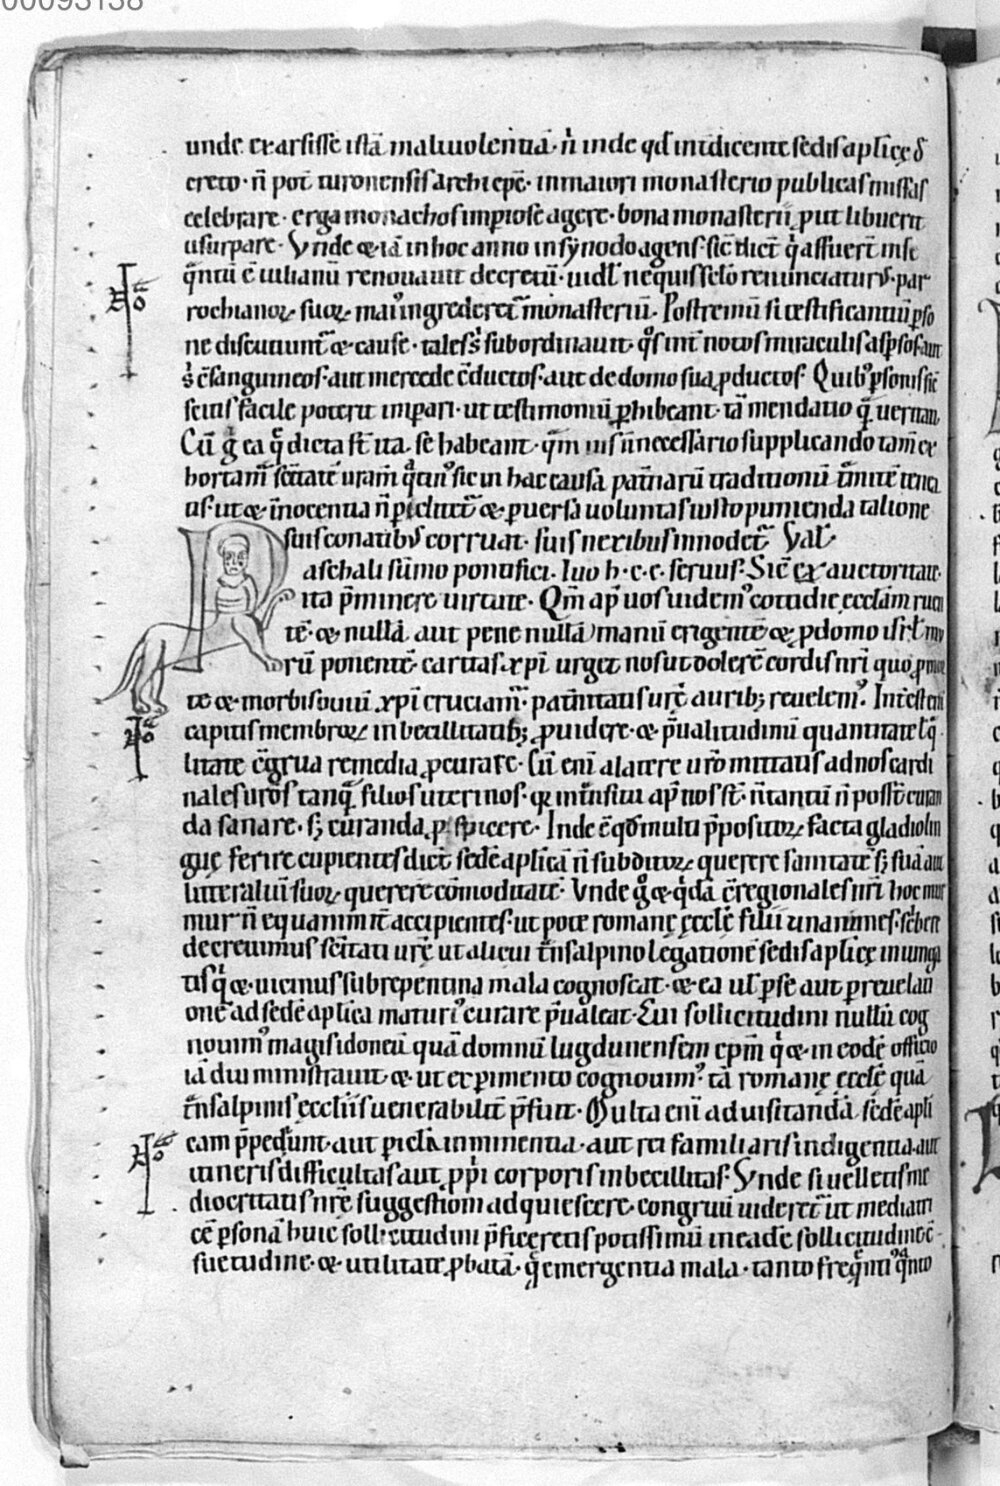 00093138
unde exarsisse istā malivolentiā· n̄ inde qđ intđicente sedis aplicę đ
creto· n̄ pot turonensis archiepc̄· in maiori monasterio publicas missas
celebrare· erga monachos imperiose agere· bona monasterii ꝓut libuerit
usurpare· Unde & iā in hoc anno in synodo agens· sic̄ dict̄ qͥ affuert̄ in se
qͣntū ē iulianū renovavit decretū· uidl̄ ne quis se sc̄lo renunciaturus· par
rochianoꝝ suoꝝ mai' ingrederet̄ monasteriū· Postremū si testificantiū ꝑso
ne discutiunt̄ & cause· tales s̄ subordinavit· qͦs int̄ notos miraculis aspsos· aut
s̄ c̄sanguineos· aut mercede c̄ductos· aut de domo sua ꝓductos· Quib' ꝑsonis sic̄
facile poterit impari· ut testimoniū ꝑhibeant· tā mendatio qͣ̄ veritati
Cū gͦ ea qͣ̄ dicta st̄ ita se habeant· qͣm nisū necessario supplicando tam̄ ex
hortam' sc̄itatē uram̄ sic in hac causa patnarū traditionū t̄mitē
ut & īnocentia n̄ piclitet̄ & ꝑversa voluntas iusto punienda talione
suis conatibus corruat· suis nexibus innodet̄ Val̄·
Paschali sūmo pontifici· Iuo h· c· e· servus· Sic̄ ex auctoritate·
ita p̄minere virtute· Qm̄ ap̄ vos videm' cottidie ecclam̄ ruen
tē· & nullā aut pene nullā manū erigentē & ꝓ domo isrl̄ mu
rū ponentē· caritas xp̄i urget nos ut dolorē cordis nr̄i quo
te & morbis quū xp̄i cruciam'· patnitatis urę̄ aurib; revelem'· Int̄est enī
capitis membroꝝ inbecillitatib; ꝓvidere· & p̄ valitudinū quantitate l̄ qͣ
litate c̄grua remedia ꝓcurare· Cū enī a latere uro mittatis ad nos cardi
nales uros tanqͣ̄ filios uterinos· qꝛ intͣnsitu ap̄ nos st̄· n̄ tantū n̄ posst̄ curan
da sanare· sꝫ curanda ꝓspicere· Inde ē qđ multi p̄positoꝝ facta gladio lin
guę ferire cupientes dict̄ sedē aplicā n̄ subditoꝝ querere sanitatē sꝫ suā aut
litteraliū suoꝝ querere cōmoditatē· Unde gͦ & qͥdā c̄regionales nr̄i hoc mur
mur n̄ equanimit̄ accipientes· ut pote romanę ęcclę̄ filii unanimes· scͥbere
decrevimus sc̄itati urę̄ ut alicui tͣnsalpino legationē sedis aplicę iniunga
tis qͥ & vicinius subrepentina mala cognoscat· & ea ul̄ ꝑ se aut ꝑ revelati
onē ad sedē aplicā maturi' curare p̄valeat· Cui sollicitudini nullū cog
novim' magis idoneū quā domnū lugdunensem epm̄ qͥ & in eodē officio
iā diu ministravit· & ut exꝑimento cognovim'· tā romanę ęcclę̄ quā
tͣnsalpinis ęccliis venerabilit̄ p̄fuit· Multa enī ad visitandā sedē apli
cam p̄pediunt· aut picl̄a imminentia· aut rei familiaris indigentia· aut
itineris difficultas aut ꝓpͥi corporis inbecillitas· Unde si velletis me
diocritatis nrę̄ suggestioni adquiescere· congruū videret̄ ut mediatri
cē ꝑsonā huic sollicitudini p̄ficeretis potissimū in eadē sollicitudine c̄
suetudine· & utilitate ꝓbatā· qͣ̄ emergentia mala· tanto freqͣ̄nti' qͣnto